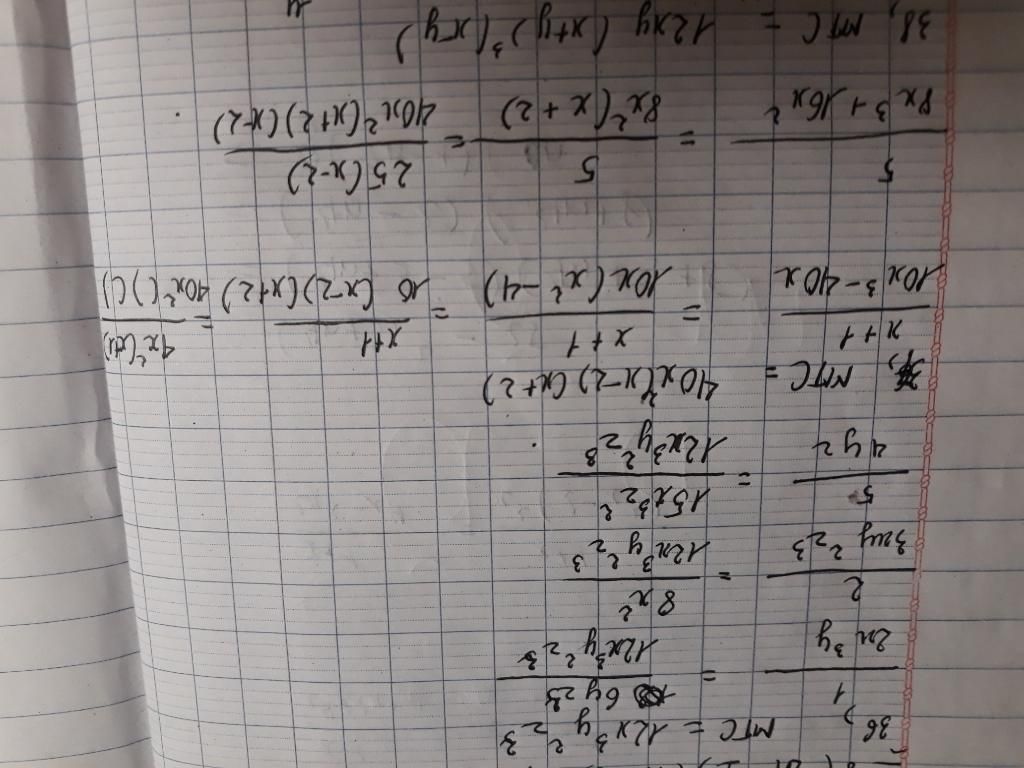 36) MTC = 12x³y²z³
1/2x³y = 6yz³/12x³y²z³
2/3xy²z³ = 8x²/12x³y²z³
5/4yz = 15x³z²/12x³y²z³.
37, MTC = 40x²(x-2)(x+2)
x+1/10x³-40x = x+1/10x(x²-4) = x+1/10(x-2)(x+2) = 4x²(x+1)/40x²( )( )
5/8x³+16x² = 5/8x²(x+2) = 25(x-2)/40x²(x+2)(x-2).
38, MTC = 12xy(x+y)³(xy)